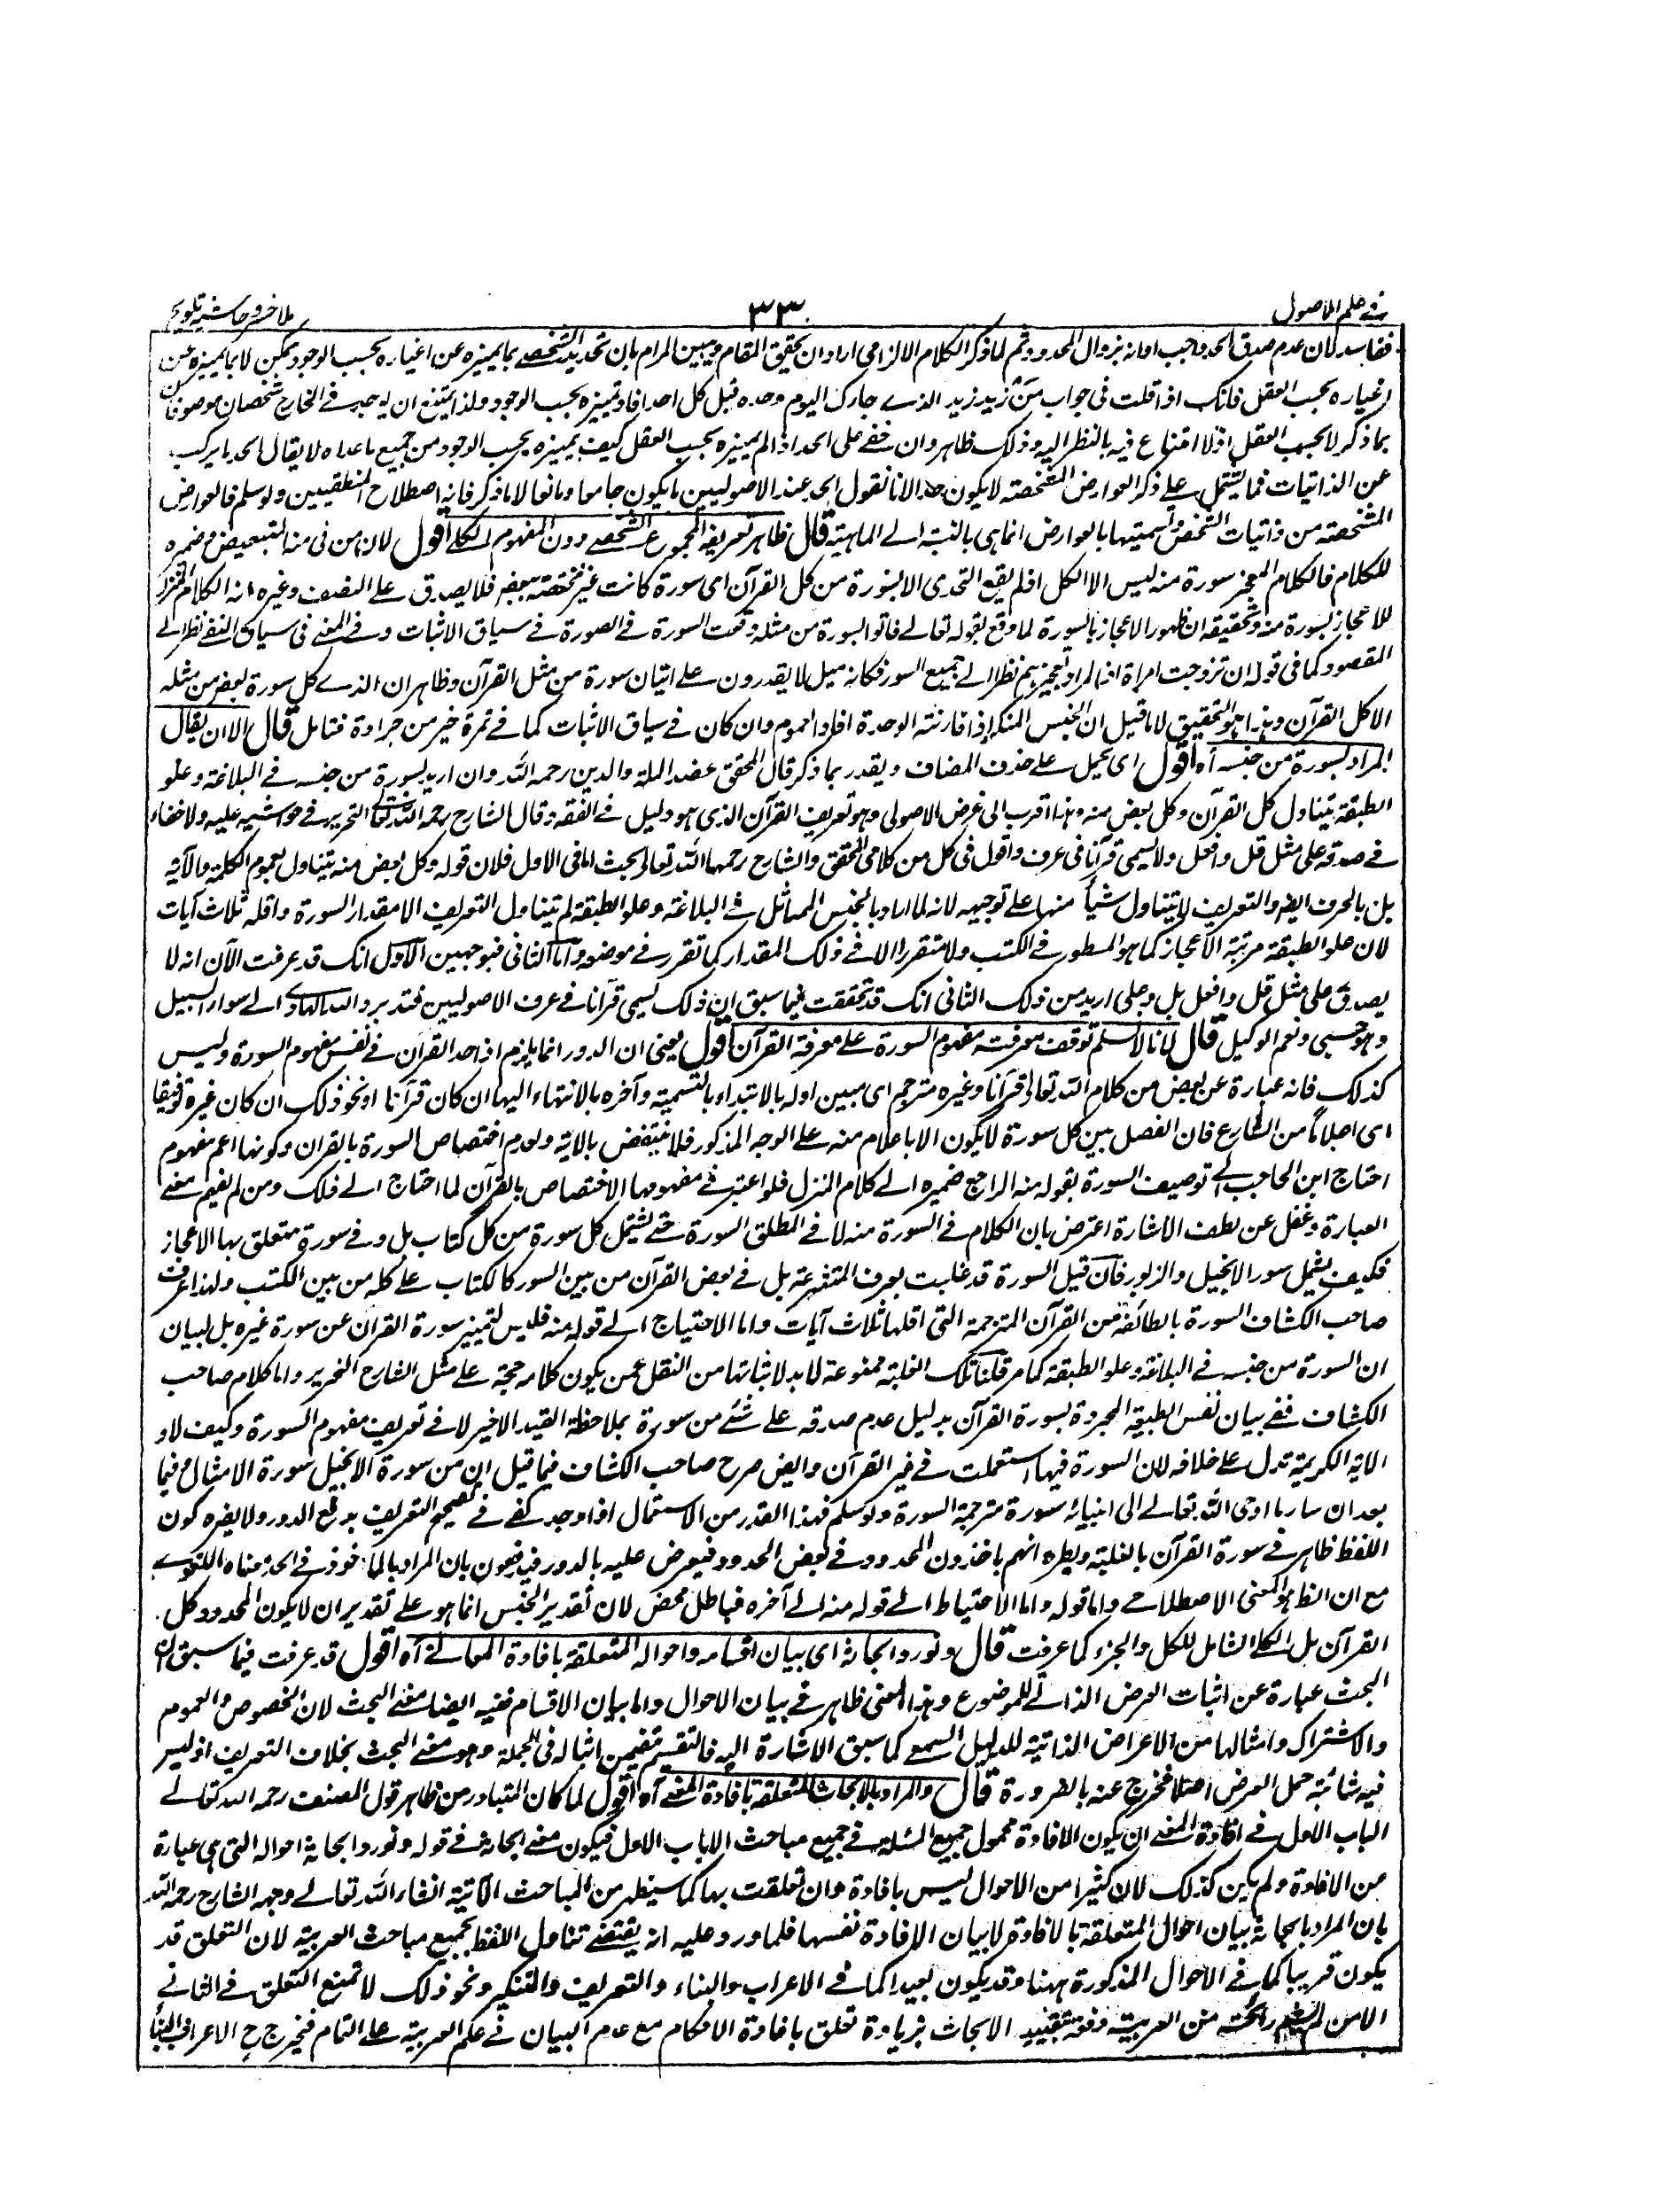 في علم الاصول
٣٣
ملا خسرو حاشية تلويح
ففاسد لان عدم صدق الحد واجب اوانه بزوال المحدود ثم لما ذكر الكلام الالزامي اراد ان يحقق المقام ويبين المرام بان تحديد الشخص بما يميزه عن اغياره بحسب الوجود ممكن لا بما يميزه عن
اغياره بحسب العقل فانك اذا قلت في جواب من زيد زيد الذي جارك اليوم وحده قبل كل احد افاد تميزه بحسب الوجود ولذا يمتنع ان يوجد في الخارج شخصان موصوفان
بما ذكر لا بحسب العقل اذ لا امتناع فيه بالنظر اليه وذلك ظاهر وان خفي على احد اذ لم يميزه بحسب العقل كيف يميزه بحسب الوجود من جميع ما عداه لا يقال الحد ما يركب
عن الذاتيات فما يشتمل على ذكر العوارض المشخصة لا يكون حدا لانا نقول الحد عند الاصوليين ما يكون جامعا ومانعا لا ما ذكر فانه اصطلاح المنطقيين ولو سلم فالعوارض
المشخصة من ذاتيات الشخص وتسميتها بالعوارض انما هي بالنسبة الى الماهية قال ظاهر تعريفه للمجموع الشخصي دون المفهوم الكلي اقول لان من في منه للتبعيض وضميره
للكلام فالكلام المعجز سورة منه ليس الا الكل اذ لم يقع التحدي الا بسورة من كل القرآن اي سورة كانت غير مختصة ببعض فلا يصدق على النصف وغيره انه الكلام المنزل
للاعجاز بسورة منه وتحقيقه ان ظهور الاعجاز بالسورة لما وقع بقوله تعالى فاتوا بسورة من مثله وقعت السورة في الصورة في سياق الاثبات وفي المعنى في سياق النفي نظرا الى
المقصود كما في قوله ان تزوجت امراة اذ المراد تعجيزهم نظرا الى جميع السور فكانه قيل لا يقدرون على اتيان سورة من مثل القرآن وظاهر ان الذي كل سورة بعض من مثله
الا كل القرآن وهذا هو التحقيق لا ما قيل ان الجنس المنكر اذا قارنته الوحدة افاد العموم وان كان في سياق الاثبات كما في تمرة خير من جرادة فتامل قال الا ان يقال
المراد بسورة من جنسه آه اقول اي يحمل على حذف المضاف ويقدر بما ذكر قال المحقق عضد الملة والدين رحمه الله وان اريد بسورة من جنسه في البلاغة وعلو
الطبقة يتناول كل القرآن وكل بعض منه وهذا اقرب الى غرض الاصولي وهو تعريف القرآن الذي هو دليل في الفقه وقال الشارح رحمه الله تعالى التحرير في حواشيه عليه ولا خفاء
في صدقه على مثل قل وافعل ولا يسمى قرآنا في عرف واقول في كل من كلامي المحقق والشارح رحمهما الله تعالى بحث اما في الاول فلان قوله وكل بعض منه يتناول بعمومه الكلمة والآية
بل بالحرف ايضا والتعريف لا يتناول شيأ منها على توجيهه لانه لما اراد بالجنس المماثل في البلاغة وعلو الطبقة لم يتناول التعريف الا مقدار السورة واقله ثلاث آيات
لان علو الطبقة مرتبة الاعجاز كما هو المسطور في الكتب ولا متقررا الا في ذلك المقدار كما تقرر في موضعه واما الثاني فبوجهين الاول انك قد عرفت الآن انه لا
يصدق على مثل قل وافعل بل وعلى ازيد من ذلك الثاني انك قد تحققت فيما سبق ان ذلك يسمى قرآنا في عرف الاصوليين فتدبر والله الهادي الى سواء السبيل
وهو حسبي ونعم الوكيل قال لانا لا نسلم توقف معرفة مفهوم السورة على معرفة القرآن اقول يعني ان الدور انما يلزم اذا احد القرآن في نفس مفهوم السورة وليس
كذلك فانه عبارة عن بعض من كلام الله تعالى قرآنا وغيره مترجم اي مبين اوله بالابتداء بالتسمية وآخره بالانتهاء اليها ان كان قرآنا او نحو ذلك ان كان غيره توقيفا
اي اعلاما من الشارع فان الفصل بين كل سورة لا يكون الا باعلام منه على الوجه المذكور فلا ينتقض بالآية ولعدم اختصاص السورة بالقران وكونها اعم مفهوم
احتاج ابن الحاجب الى توصيف السورة بقوله منه الراجع ضميره الى كلام المنزل فلو اعتبر في مفهومها الاختصاص بالقرآن لما احتاج الى ذلك ومن لم يفهم معنى
العبارة وغفل عن لطف الاشارة اعترض بان الكلام في السورة منه لا في المطلق السورة حتى يشتمل كل سورة من كل كتاب بل وفي سورة متعلق بها الاعجاز
فكيف يشمل سور الانجيل والزبور فان قيل السورة قد غلبت بعرف المتشرعة بل في بعض القرآن من بين السور كالكتاب على كله من بين الكتب ولهذا عرف
صاحب الكشاف السورة بالطائفة من القرآن المترجمة التي اقلها ثلاث آيات واما الاحتياج الى قوله منه فليس لتميز سورة القران عن سورة غيره بل لبيان
ان السورة من جنسه في البلاغة وعلو الطبقة كما مر قلنا تلك الغلبة ممنوعة لا بد لاثباتها من النقل عمن يكون كلامه حجة على مثل الشارح النحرير واما كلام صاحب
الكشاف ففي بيان نفس الطبيعة المجردة بسورة القرآن بدليل عدم صدقه على شئ من سورة بملاحظة القيد الاخير لا في تعريف مفهوم السورة وكيف لا و
الآية الكريمة تدل على خلافه لان السورة فيها استعملت في غير القرآن وايض صرح صاحب الكشاف فيما قيل ان من سورة الانجيل سورة الامثال وفيما
بعد ان سائر ما اوحى الله تعالى الى انبيائه سورة مترجمة السورة ولو سلم فهذا القدر من الاستعمال اذا وجد كفى في تصحيح التعريف بدفع الدور ولا يضره كون
اللفظ ظاهر في سورة القرآن بالغلبة ويطرد انهم ياخذون المحدود في بعض الحدود فيعرض عليه بالدور فيدفعون بان المراد بالماخوذ في الحد معناه اللغوي
مع ان الظاهر هو المعنى الاصطلاحي واما قوله واما الاحتياط الى قوله منه الى آخره فباطل محض لان تقدير الجنس انما هو على تقدير ان لا يكون المحدود كل
القرآن بل الكلي الشامل للكل والجزء كما عرفت قال ونورد ابحاثه اي بيان اقسامه واحواله المتعلقة بافادة المعاني آه اقول قد عرفت فيما سبق ان
البحث عبارة عن اثبات العرض الذاتي للموضوع وهذا المعنى ظاهر في بيان الاحوال واما بيان الاقسام ففيه ايضا معنى البحث لان الخصوص والعموم
والاشتراك وامثالها من الاعراض الذاتية للدليل السمعي كما سبق الاشارة اليه فالتقسيم يتضمن اثباته في الجملة وهو معنى البحث بخلاف التعريف اذ ليس
فيه شائبة حمل العرض اصلا فخرج عنه بالضرورة قال والمراد بالابحاث المتعلقة بافادة المعنى آه اقول لما كان المتبادر من ظاهر قول المصنف رحمه الله تعالى
الباب الاول في افادة المعنى ان يكون الافادة محمول جميع المسائل في جميع مباحث الباب الاول فيكون معنى ابحاثه في قوله ونورد ابحاثه احواله التي هي عبارة
من الافادة ولم يكن كذلك لان كثيرا من الاحوال ليس بافادة وان تعلقت بها كما سيظهر من المباحث الآتية انشاء الله تعالى وجهه الشارح رحمه الله
بان المراد بابحاثه بيان احوال المتعلقة بالافادة لا بيان الافادة نفسها فلما ورد عليه انه يقتضي تناول اللفظ لجميع مباحث العربية لان التعلق قد
يكون قريبا كما في الاحوال المذكورة ههنا وقد يكون بعيدا كما في الاعراب والبناء والتعريف والتنكير ونحو ذلك لا تمنع التعلق في الثاني
الا من لم يشم رائحة من العربية دفعه بتقييد الابحاث بزيادة تعلق بافادة الاحكام مع عدم البيان في علم العربية على التمام فيخرج ح الاعراب والبناء